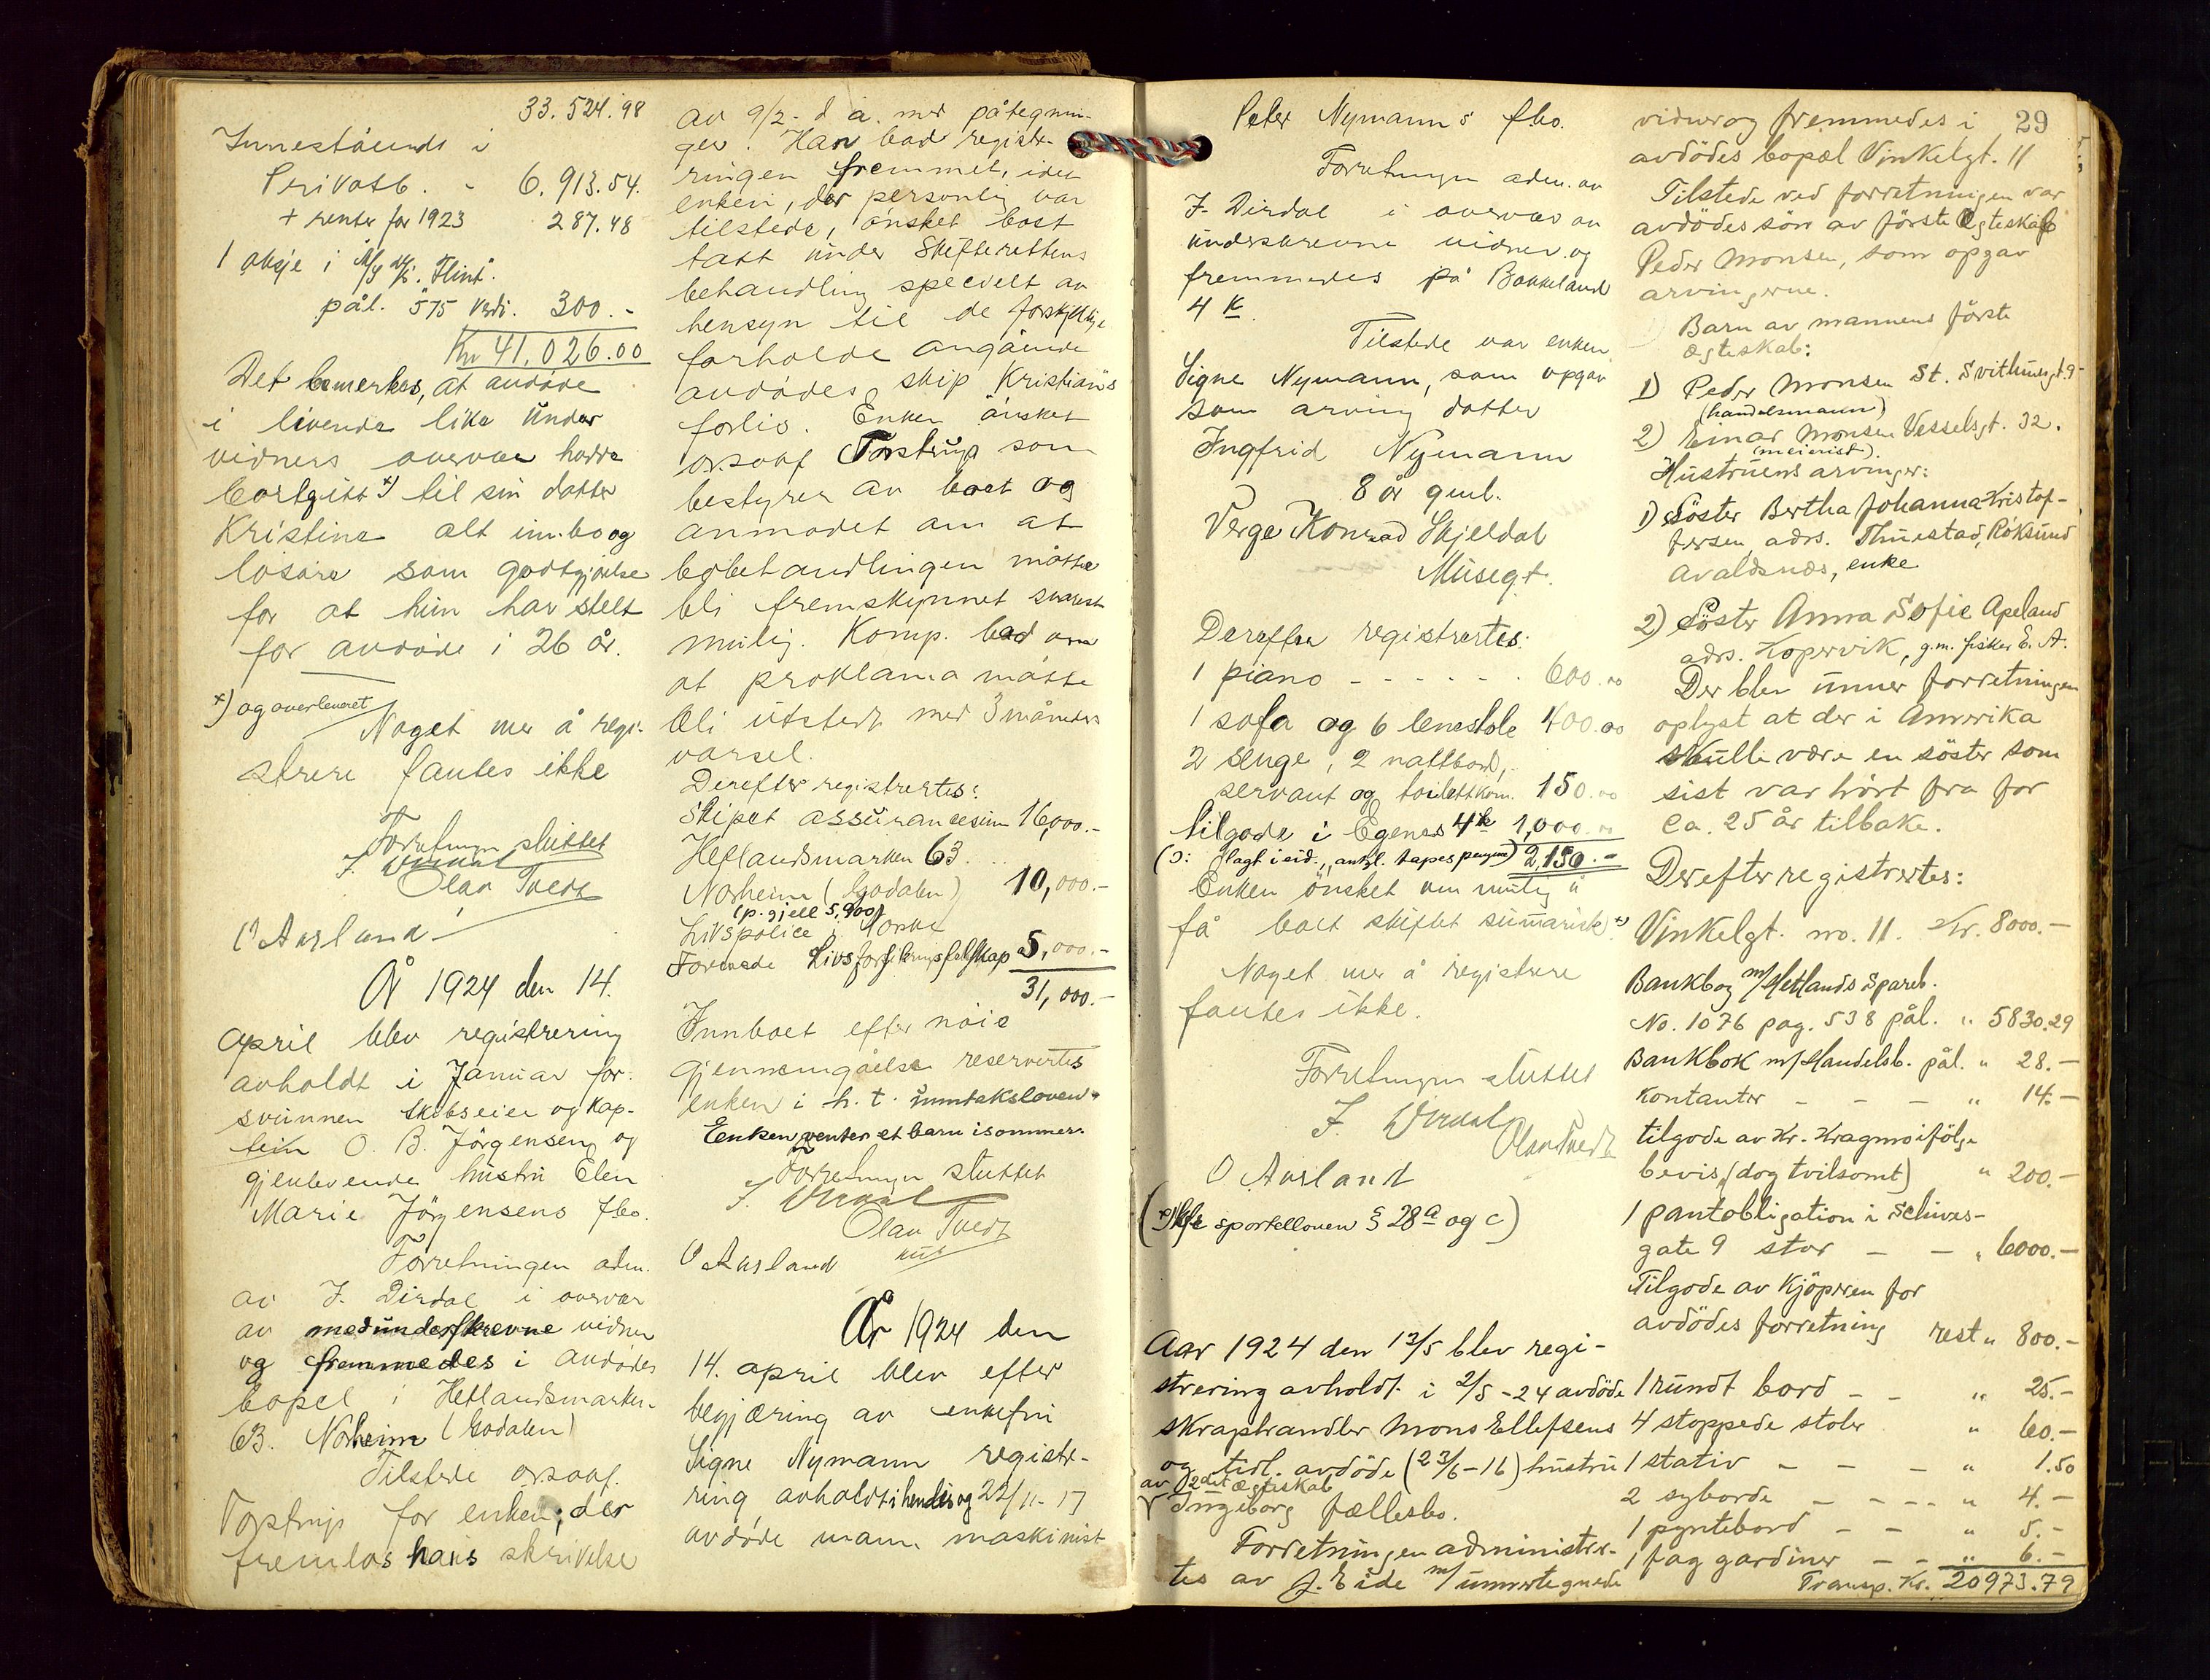 33.524.98
Innestående i
Privatb. - 6.913.54.
+ renter for 1923 287.48
1 aksje i M/S "Flint".
pål. 575 verdi. 300.-
Kr 41.026.00
Det bemerkes, at avdöde
i levende live under
vidners overvær hadde
bortgitt x) til sin datter
Kristine alt innbo og
lösöre som godtgjörelse
for at hun har stelt
for avdöde i 26 år.
x) og overleveret
Noget mer å regi-
strere fantes ikke
Forretningen sluttet
J. Dirdal
Olav Tvedt
O Ausland
År 1924 den 14.
april blev registrering
avholdt i Januar for-
svunnen skibseier og kap-
tein O. B. Jörgensen og
gjenlevende hustru Elen
Marie Jörgensens fbo.
Forretningen adm.
av J. Dirdal i overvær
av medunderskrevne vidner
og fremmedes i avdödes
bopel i Hetlandsmarken
63. Norheim (Godalen)
Tilstede orsakf.
Torstrup for enken, der
fremlas hans skrivelse
av 9/2- d å. med påtegnin-
ger. Han bad registre-
ringen fremmet, idet
enken, der personlig var
tilstede, önsket boet
tatt under Skifterettens
behandling specielt av
hensyn til de forskjellige
forholde angående
avdödes skip Kristian's
forlis. Enken önsket
orsakf Torstrup som
bestyrer av boet og
anmodet om at
bobehandlingen måtte
bli fremskynnet snarest
mulig. Komp. bad om
at proklama måtte
bli utstedt med 3 måneders
varsel.
Derefter registrertes:
Skipet assurancesum 16,000.-
Hetlandsmarken 63. ..
Norheim (Godalen) 10,000.-
(p. gjell 5,900)
Livspolice i Norske
Forenede Livsforsikringsselskap 5,000.-
31,000.-
Innboet efter nöie
gjennemgåelse reservertes
enken i h. t. unntaksloven.
Enken venter et barn i sommer.
Forretningen sluttet
J. Dirdal
Olav Tvedt
O Ausland
År 1924 den
14. april blev efter
begjæring av enkefru
Signe Nymann registre-
ring avholdt i hendes og 22/11-17
avdöde mann, maskinist
Peter Nymanns fbo.
Forretningen adm. av
J. Dirdal i overvær av
underskrevne vidner og
fremmedes på Bakkeland
4 K
Tilstede var enken
Signe Nymann, som opgav
som arving datter
Ingfrid Nymann
8 år gml.
Verge Konrad Skjeldal
Musegt.
Derefter registrertes:
1 piano - - - - - - 600.00
1 sofa og 6 lenestole 400.00
2 senge, 2 nattbord,
servant og toilettkom. 150.00
tilgode i Egenes 4 k 1,000.00
2,150.-
Enken önsket om mulig å
få boet skiftet sumarisk x)
Noget mer å registrere
fantes ikke.
Forretningen sluttet
J. Dirdal
Olav Tvedt
O Ausland
(x) sportelloven § 28 a og c)
Aar 1924 den 13/5 blev regi-
strering avholdt i 2/5-24 avdöde
skraphandler Mons Ellefsens
og tidl. avdöde (23/6-16) hustru
av 2det ægteskab
Ingeborg fællesbo.
Forretningen administer-
tes av J. Eide m/ unnertegnede
29
vidner og fremmedes i
avdödes bopæl Vinkelgt. 11
Tilstede ved forretningen var
avdödes sön av förste Ægteskab
Peder Monsen, som opgav
arvingerne.
Barn av mannens förste
ægteskab:
1) Peder Monsen St. Svithunsgt. 9
(handelsmann)
2) Einar Monsen Vesselsgt. 32.
(meierist).
Hustruens arvinger:
1) Söster Bertha Johanna Kristof-
fersen adrs. Thuestad, Röksund
Avaldsnes, enke
2) Söster Anna Sofie Apeland
adrs. Kopervik, g.m. fisker E. A.
Der blev unner forretningen
oplyst at der i Amerika
skulle være en söster som
sist var hört fra for
ca. 25 år tilbake.
Derefter registrertes:
Vinkelgt. no. 11. Kr. 8000.-
Bankbog m/Hetlands Spareb.
No. 1076 pag. 538 pål. " 5830.29
Bankbok m/Handelsb. pål. " 28.-
Kontanter - - - " 14.-
tilgode av Kr. Kragmo ifölge
bevis, (dog tvilsomt) " 200.-
1 pantobligation i Schives-
gate 9 stor - - " 6000.-
Tilgode av Kjöperen for
avdödes forretning rest " 800.-
1 rundt bord - - " 25.-
4 stoppede stoler " 60.-
1 stativ - - - " 1.50
2 syborde - - - - " 4.-
1 pyntebord - - " 5.-
1 fag gardiner - - " 6.-
Transp. Kr. 20973.79